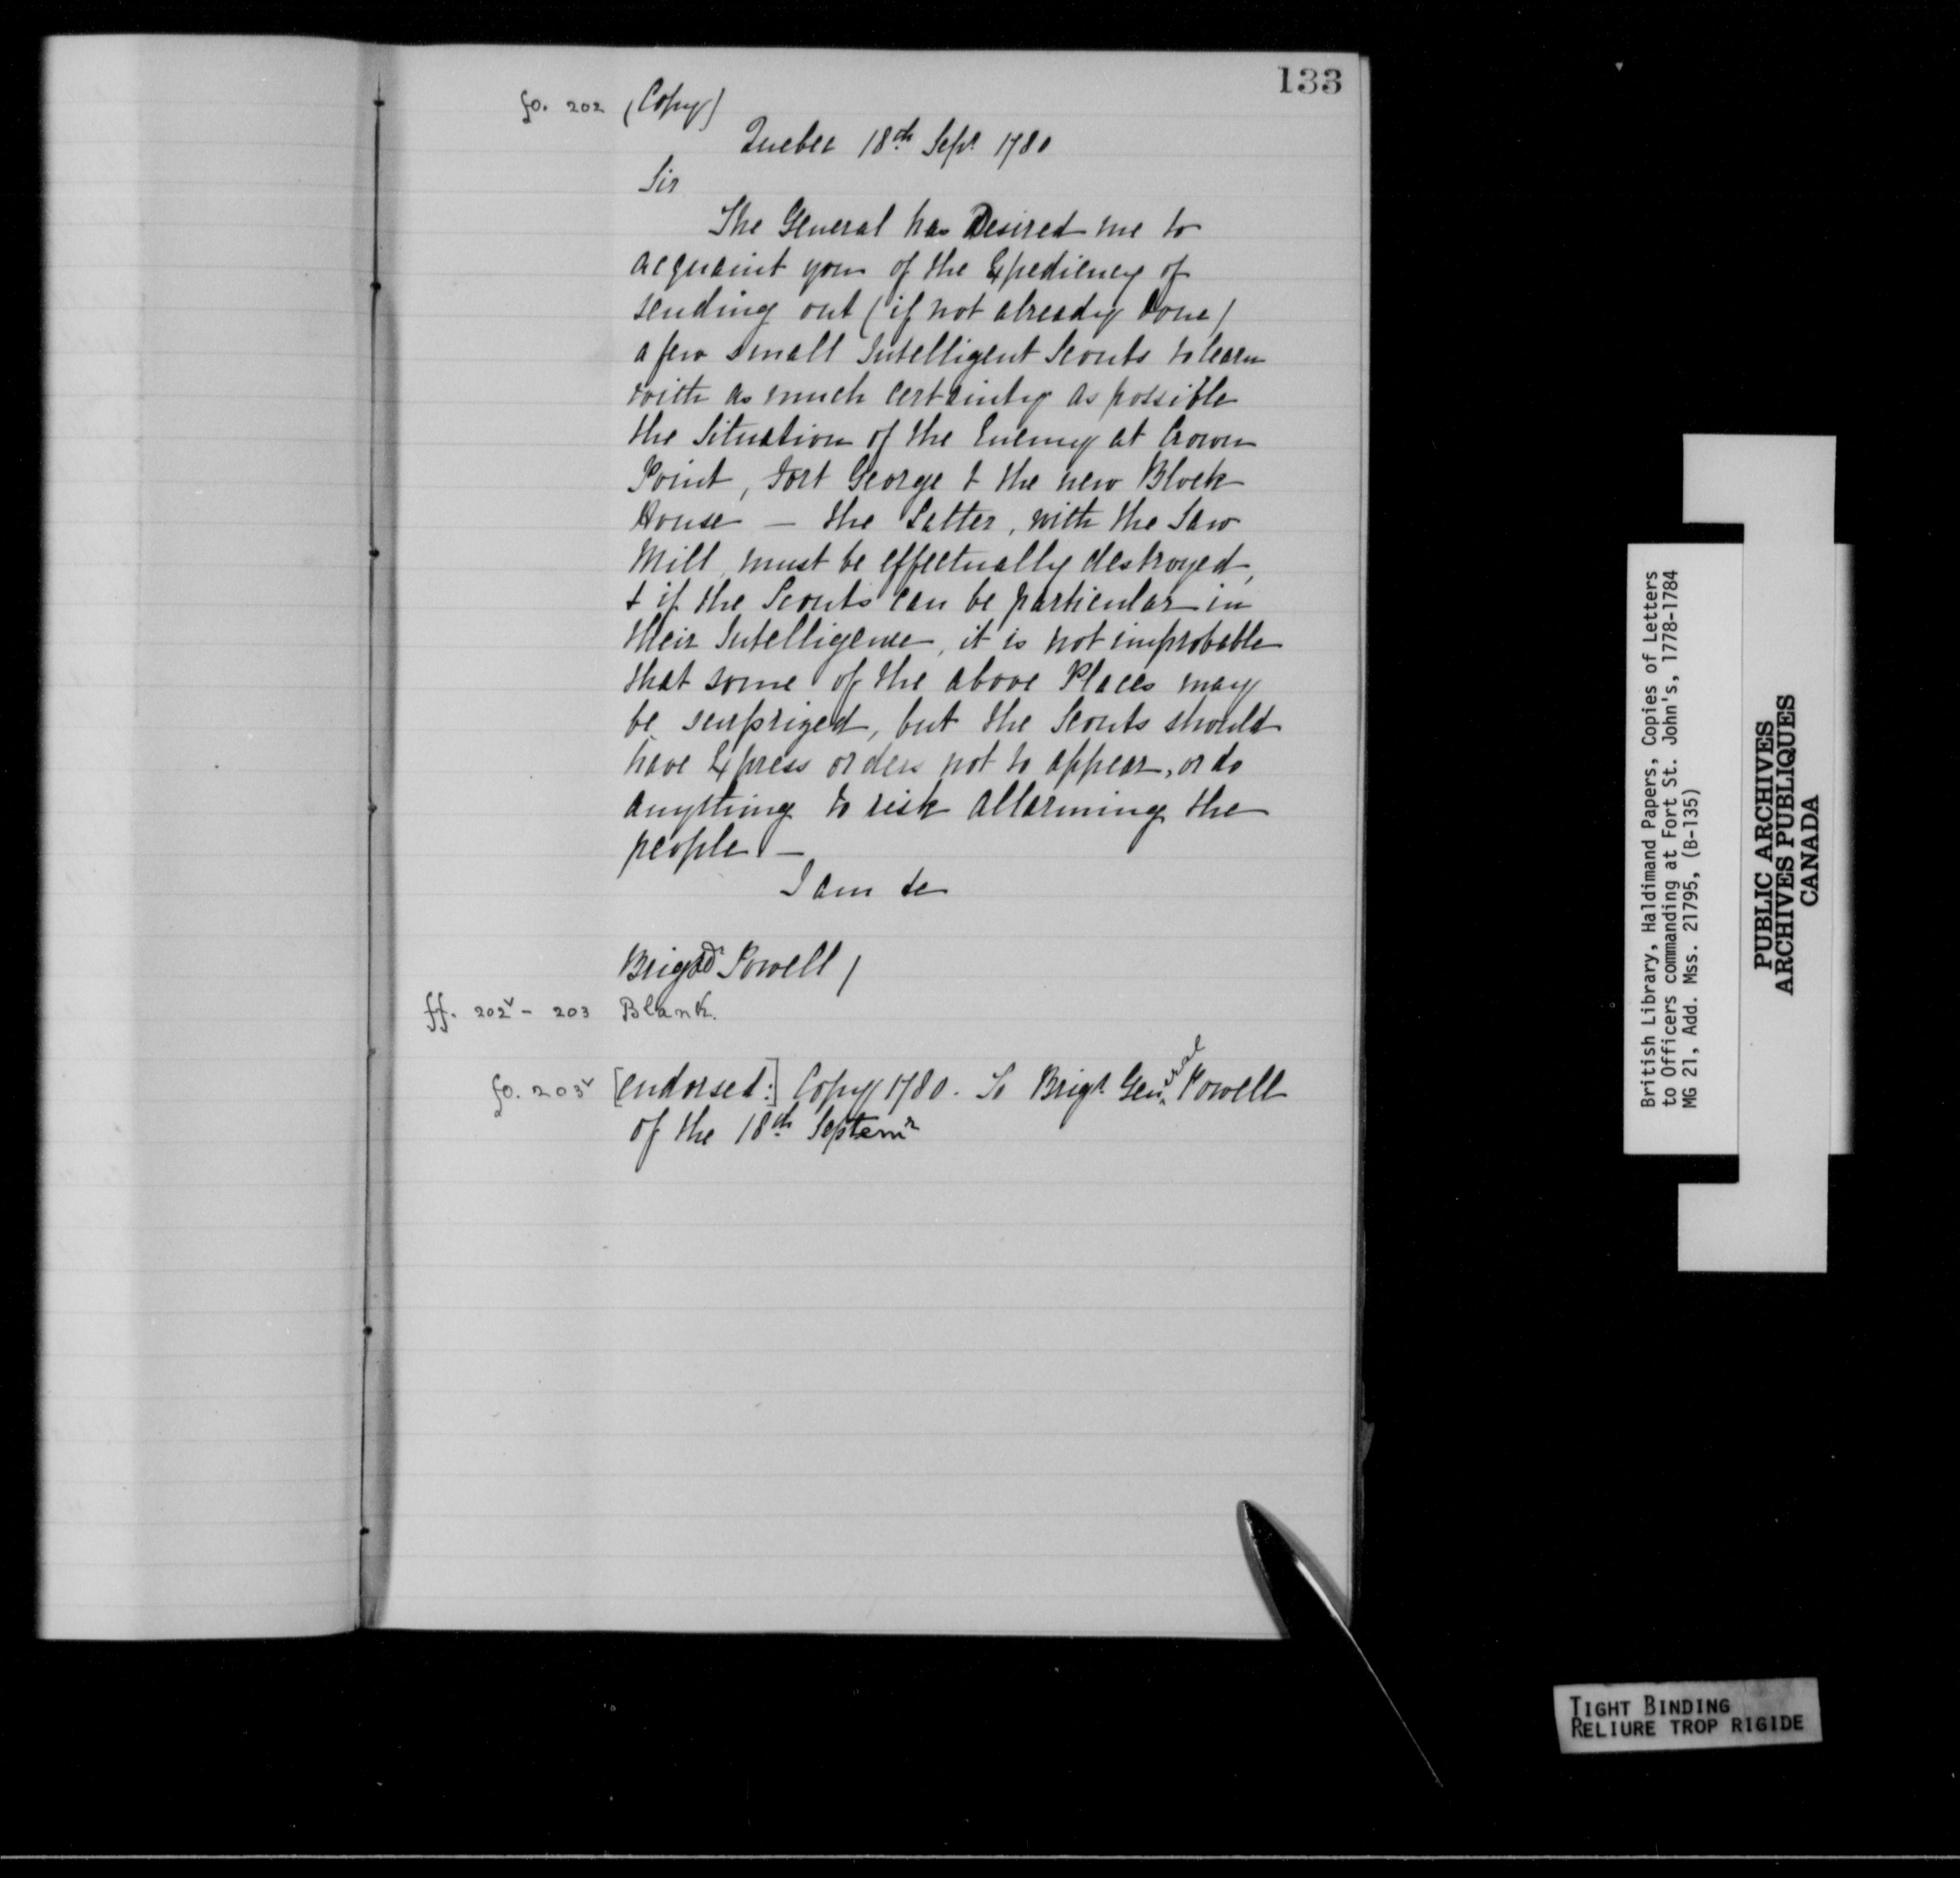 133
fo. 202 (Copy)
Quebec 18th Sept 1780
Sir
The General has Desired me to
acquaint you of the Expediency of
sending out (if not already Done)
a few small Intelligent Scouts to learn
with as much certainty as possible
the Situation of the Enemy at Crown
Point, Fort George & the new Block
House — the Latter, with the Saw
Mill, must be effectually destroyed,
& if the Scouts can be particular in
their Intelligence, it is not improbable
that some of the above Places may
be surprized, but the Scouts should
have Express orders not to appear, or do
anything to risk allarming the
people. —
I am &c
Brigdr Powell /
ff. 202v - 203 Blank.
fo. 203v [endorsed:] Copy 1780. To Brigr. General Powell
of the 18th Septemr
British Library, Haldimand Papers, Copies of Letters
to Officers commanding at Fort St. John's, 1778-1784
MG 21, Add. Mss. 21795, (B-135)
PUBLIC ARCHIVES
ARCHIVES PUBLIQUES
CANADA
TIGHT BINDING
RELIURE TROP RIGIDE